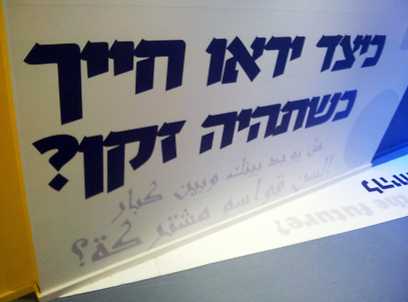 כיצד יראו חייך
כשתהיה זקן?
هل يوجد بينك وبين كبار
السن قواسم مشتركة؟
the future?